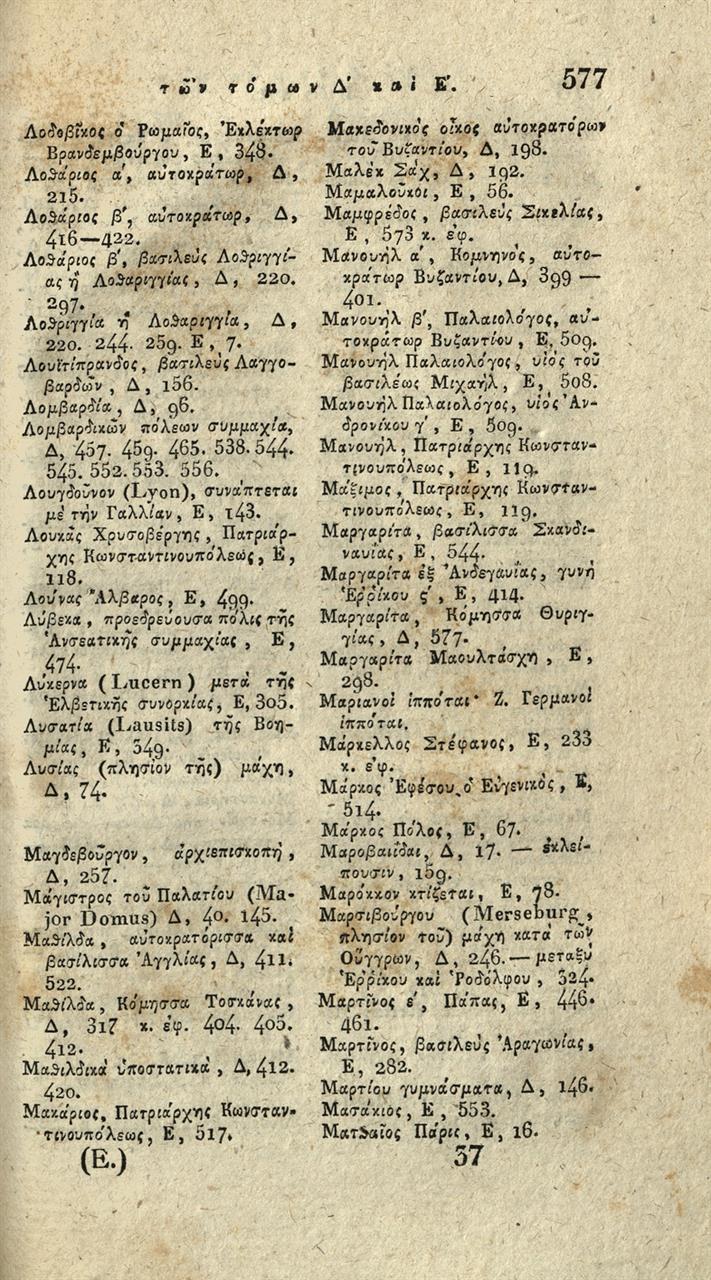 τῶν τόμων Δ' καὶ Ε'.
577
Λοδοβῖκος ὁ Ῥωμαῖος, Ἐκλέκτωρ
Βρανδεμβούργου, Ε, 348.
Λοθάριος α', αὐτοκράτωρ, Δ,
215.
Λοθάριος β', αὐτοκράτωρ, Δ,
416—422.
Λοθάριος β', βασιλεὺς Λοθριγγί-
ας ἢ Λοθαριγγίας, Δ, 220.
297.
Λοθριγγία ἢ Λοθαριγγία, Δ,
220. 244. 259. Ε, 7.
Λουϊτίπρανδος, βασιλεὺς Λαγγο-
βαρδῶν, Δ, 156.
Λομβαρδία, Δ, 96.
Λομβαρδικῶν πόλεων συμμαχία,
Δ, 457. 459. 465. 538. 544.
545. 552. 553. 556.
Λουγδοῦνον (Lyon), συνάπτεται
μὲ τὴν Γαλλίαν, Ε, 143.
Λουκᾶς Χρυσοβέργης, Πατριάρ-
χης Κωνσταντινουπόλεως, Ε,
118.
Λούνας Ἄλβαρος, Ε, 499.
Λύβεκα, προεδρεύουσα πόλις τῆς
Ἀνσεατικῆς συμμαχίας, Ε,
474.
Λύκερνα (Lucern) μετὰ τῆς
Ἐλβετικῆς συνορκίας, Ε, 305.
Λυσατία (Lausits) τῆς Βοη-
μίας, Ε, 349.
Λυσίας (πλησίον τῆς) μάχη,
Δ, 74.
Μαγδεβοῦργον, ἀρχιεπισκοπὴ,
Δ, 257.
Μάγιστρος τοῦ Παλατίου (Ma-
jor Domus) Δ, 40. 145.
Μαθίλδα, αὐτοκρατόρισσα καὶ
βασίλισσα Ἀγγλίας, Δ, 411.
522.
Μαθίλδα, Κόμησσα Τοσκάνας,
Δ, 317 κ. ἐφ. 404. 405.
412.
Μαθιλδικὰ ὑποστατικὰ, Δ, 412.
420.
Μακάριος, Πατριάρχης Κωνσταν-
τινουπόλεως, Ε, 517.
(Ε.)
Μακεδονικὸς οἶκος αὐτοκρατόρων
τοῦ Βυζαντίου, Δ, 198.
Μαλὲκ Σὰχ, Δ, 192.
Μαμαλοῦκοι, Ε, 56.
Μαμφρέδος, βασιλεὺς Σικελίας,
Ε, 573 κ. ἐφ.
Μανουὴλ α', Κομνηνὸς, αὐτο-
κράτωρ Βυζαντίου, Δ, 399 —
401.
Μανουὴλ β', Παλαιολόγος, αὐ-
τοκράτωρ Βυζαντίου, Ε, 509.
Μανουὴλ Παλαιολόγος, υἱὸς τοῦ
βασιλέως Μιχαὴλ, Ε, 508.
Μανουὴλ Παλαιολόγος, υἱὸς Ἀν-
δρονίκου γ', Ε, 509.
Μανουὴλ, Πατριάρχης Κωνσταν-
τινουπόλεως, Ε, 119.
Μάξιμος, Πατριάρχης Κωνσταν-
τινουπόλεως, Ε, 119.
Μαργαρίτα, βασίλισσα Σκανδι-
ναυΐας, Ε, 544.
Μαργαρίτα ἐξ Ἀνδεγαυΐας, γυνὴ
Ἑῤῥίκου ς', Ε, 414.
Μαργαρίτα, Κόμησσα Θυριγ-
γίας, Δ, 577.
Μαργαρίτα Μαουλτάσχη, Ε,
298.
Μαριανοὶ ἱππόται· Ζ. Γερμανοὶ
ἱππόται.
Μάρκελλος Στέφανος, Ε, 233
κ. ἐφ.
Μάρκος Ἐφέσου ὁ Εὐγενικὸς, Ε,
514.
Μάρκος Πόλος, Ε, 67.
Μαροβαιΐδαι, Δ, 17. — ἐκλεί-
πουσιν, 159.
Μαρόκκον κτίζεται, Ε, 78.
Μαρσιβούργου (Merseburg,
πλησίον τοῦ) μάχη κατὰ τῶν
Οὔγγρων, Δ, 246. — μεταξὺ
Ἑῤῥίκου καὶ Ῥοδόλφου, 324.
Μαρτῖνος ε', Πάπας, Ε, 446.
461.
Μαρτῖνος, βασιλεὺς Ἀραγωνίας,
Ε, 282.
Μαρτίου γυμνάσματα, Δ, 146.
Μασάκιος, Ε, 553.
Ματθαῖος Πάρις, Ε, 16.
37